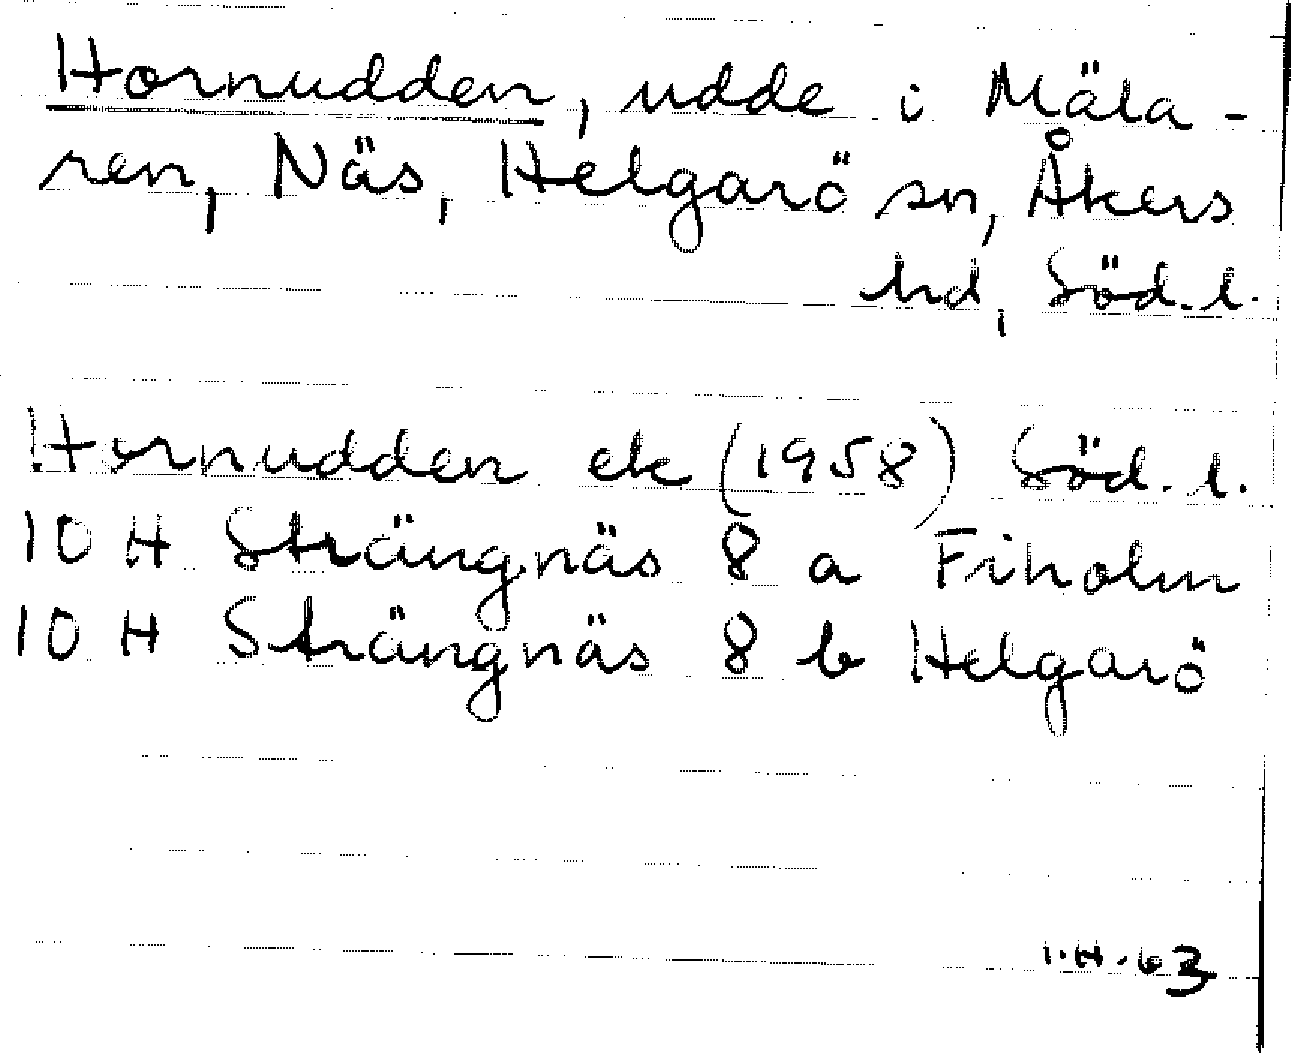 Hornudden, udde i Mäla-
ren, Näs, Helgarö sn, Åkers
hd, Söd.l.
Hornudden ek (1958) Söd.l.
10 H Strängnäs 8 a Fiholm
10 H Strängnäs 8 b Helgarö
I.H.63